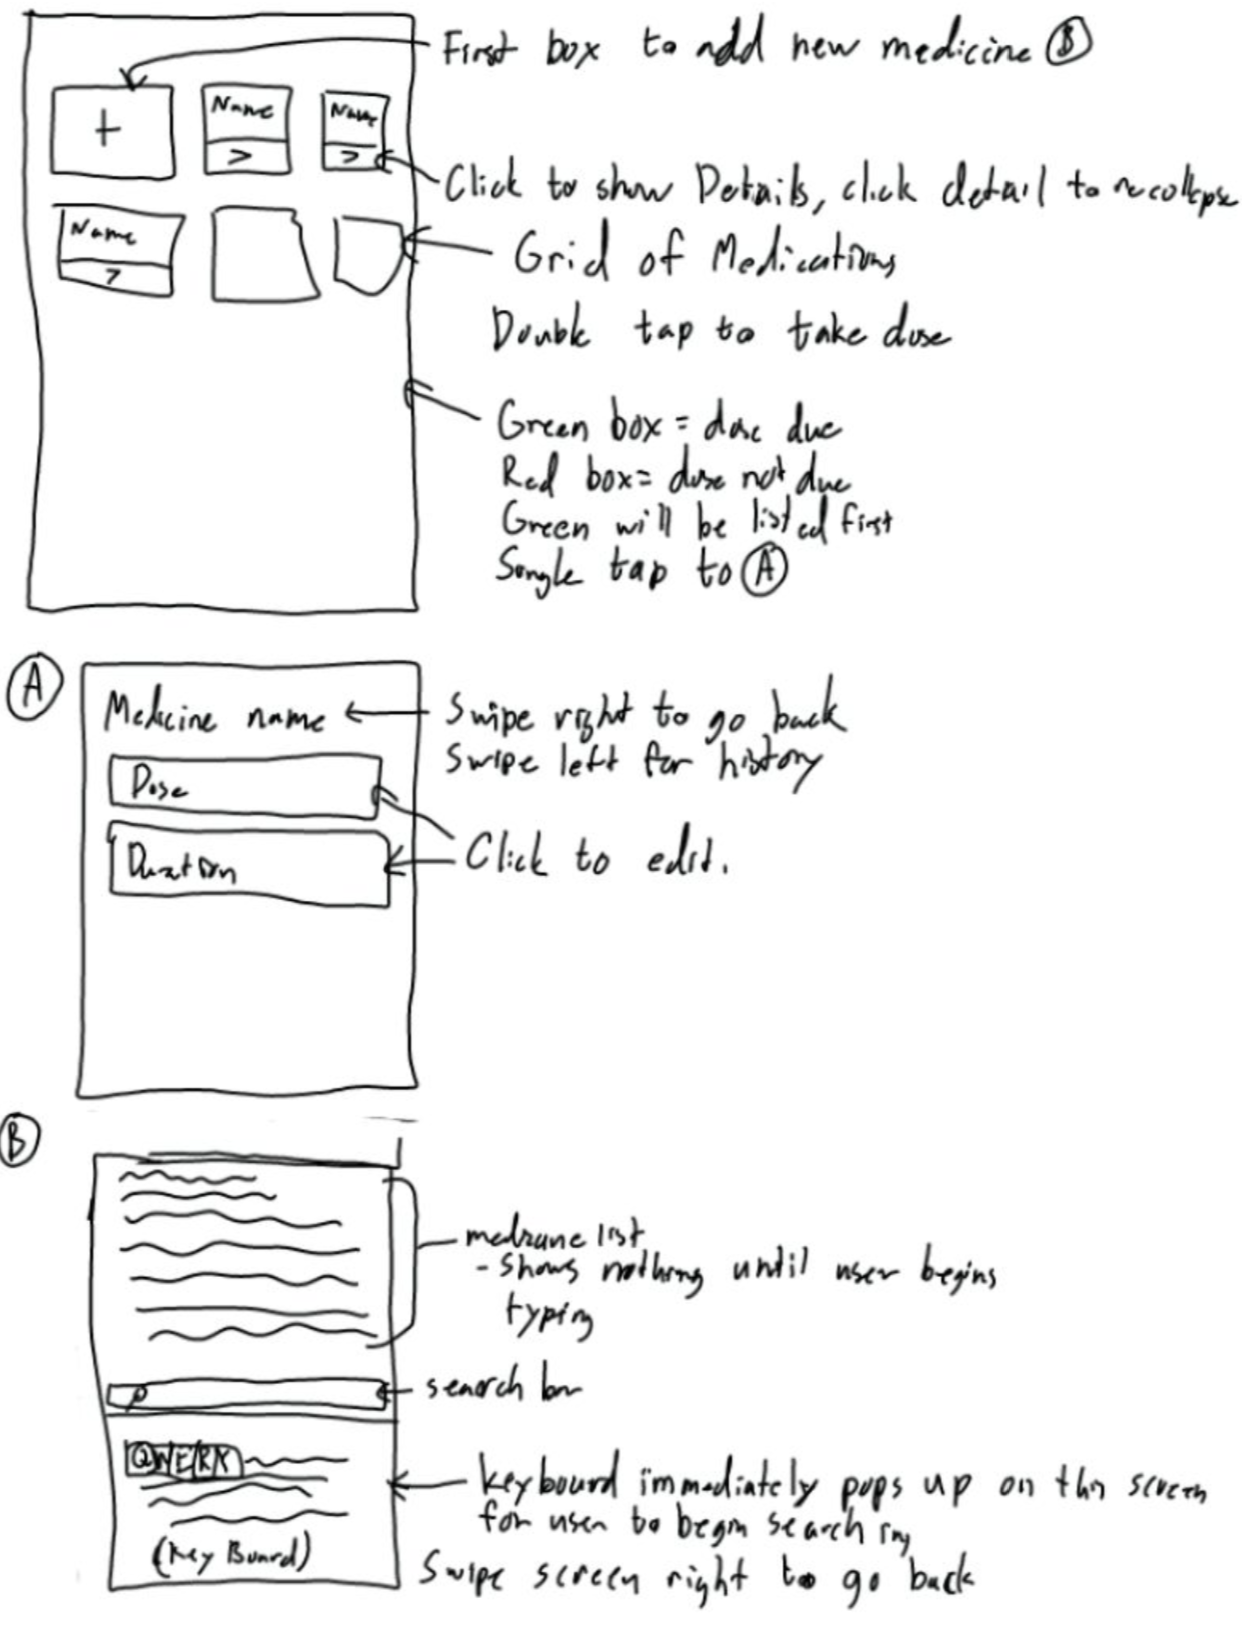 First box to add new medicine Ⓑ
+
Name
>
Name
>
Click to show Details, click detail to recollapse
Name
>
Grid of Medications
Double tap to take dose
Green box = dose due
Red box = dose not due
Green will be listed first
Single tap to Ⓐ
Ⓐ
Medicine name
Swipe right to go back
Swipe left for history
Dose
Duration
Click to edit.
Ⓑ
medicine list
- shows nothing until user begins
typing
search bar
QWERY
(Key Board)
keyboard immediately pops up on this screen
for user to begin searching
Swipe screen right to go back